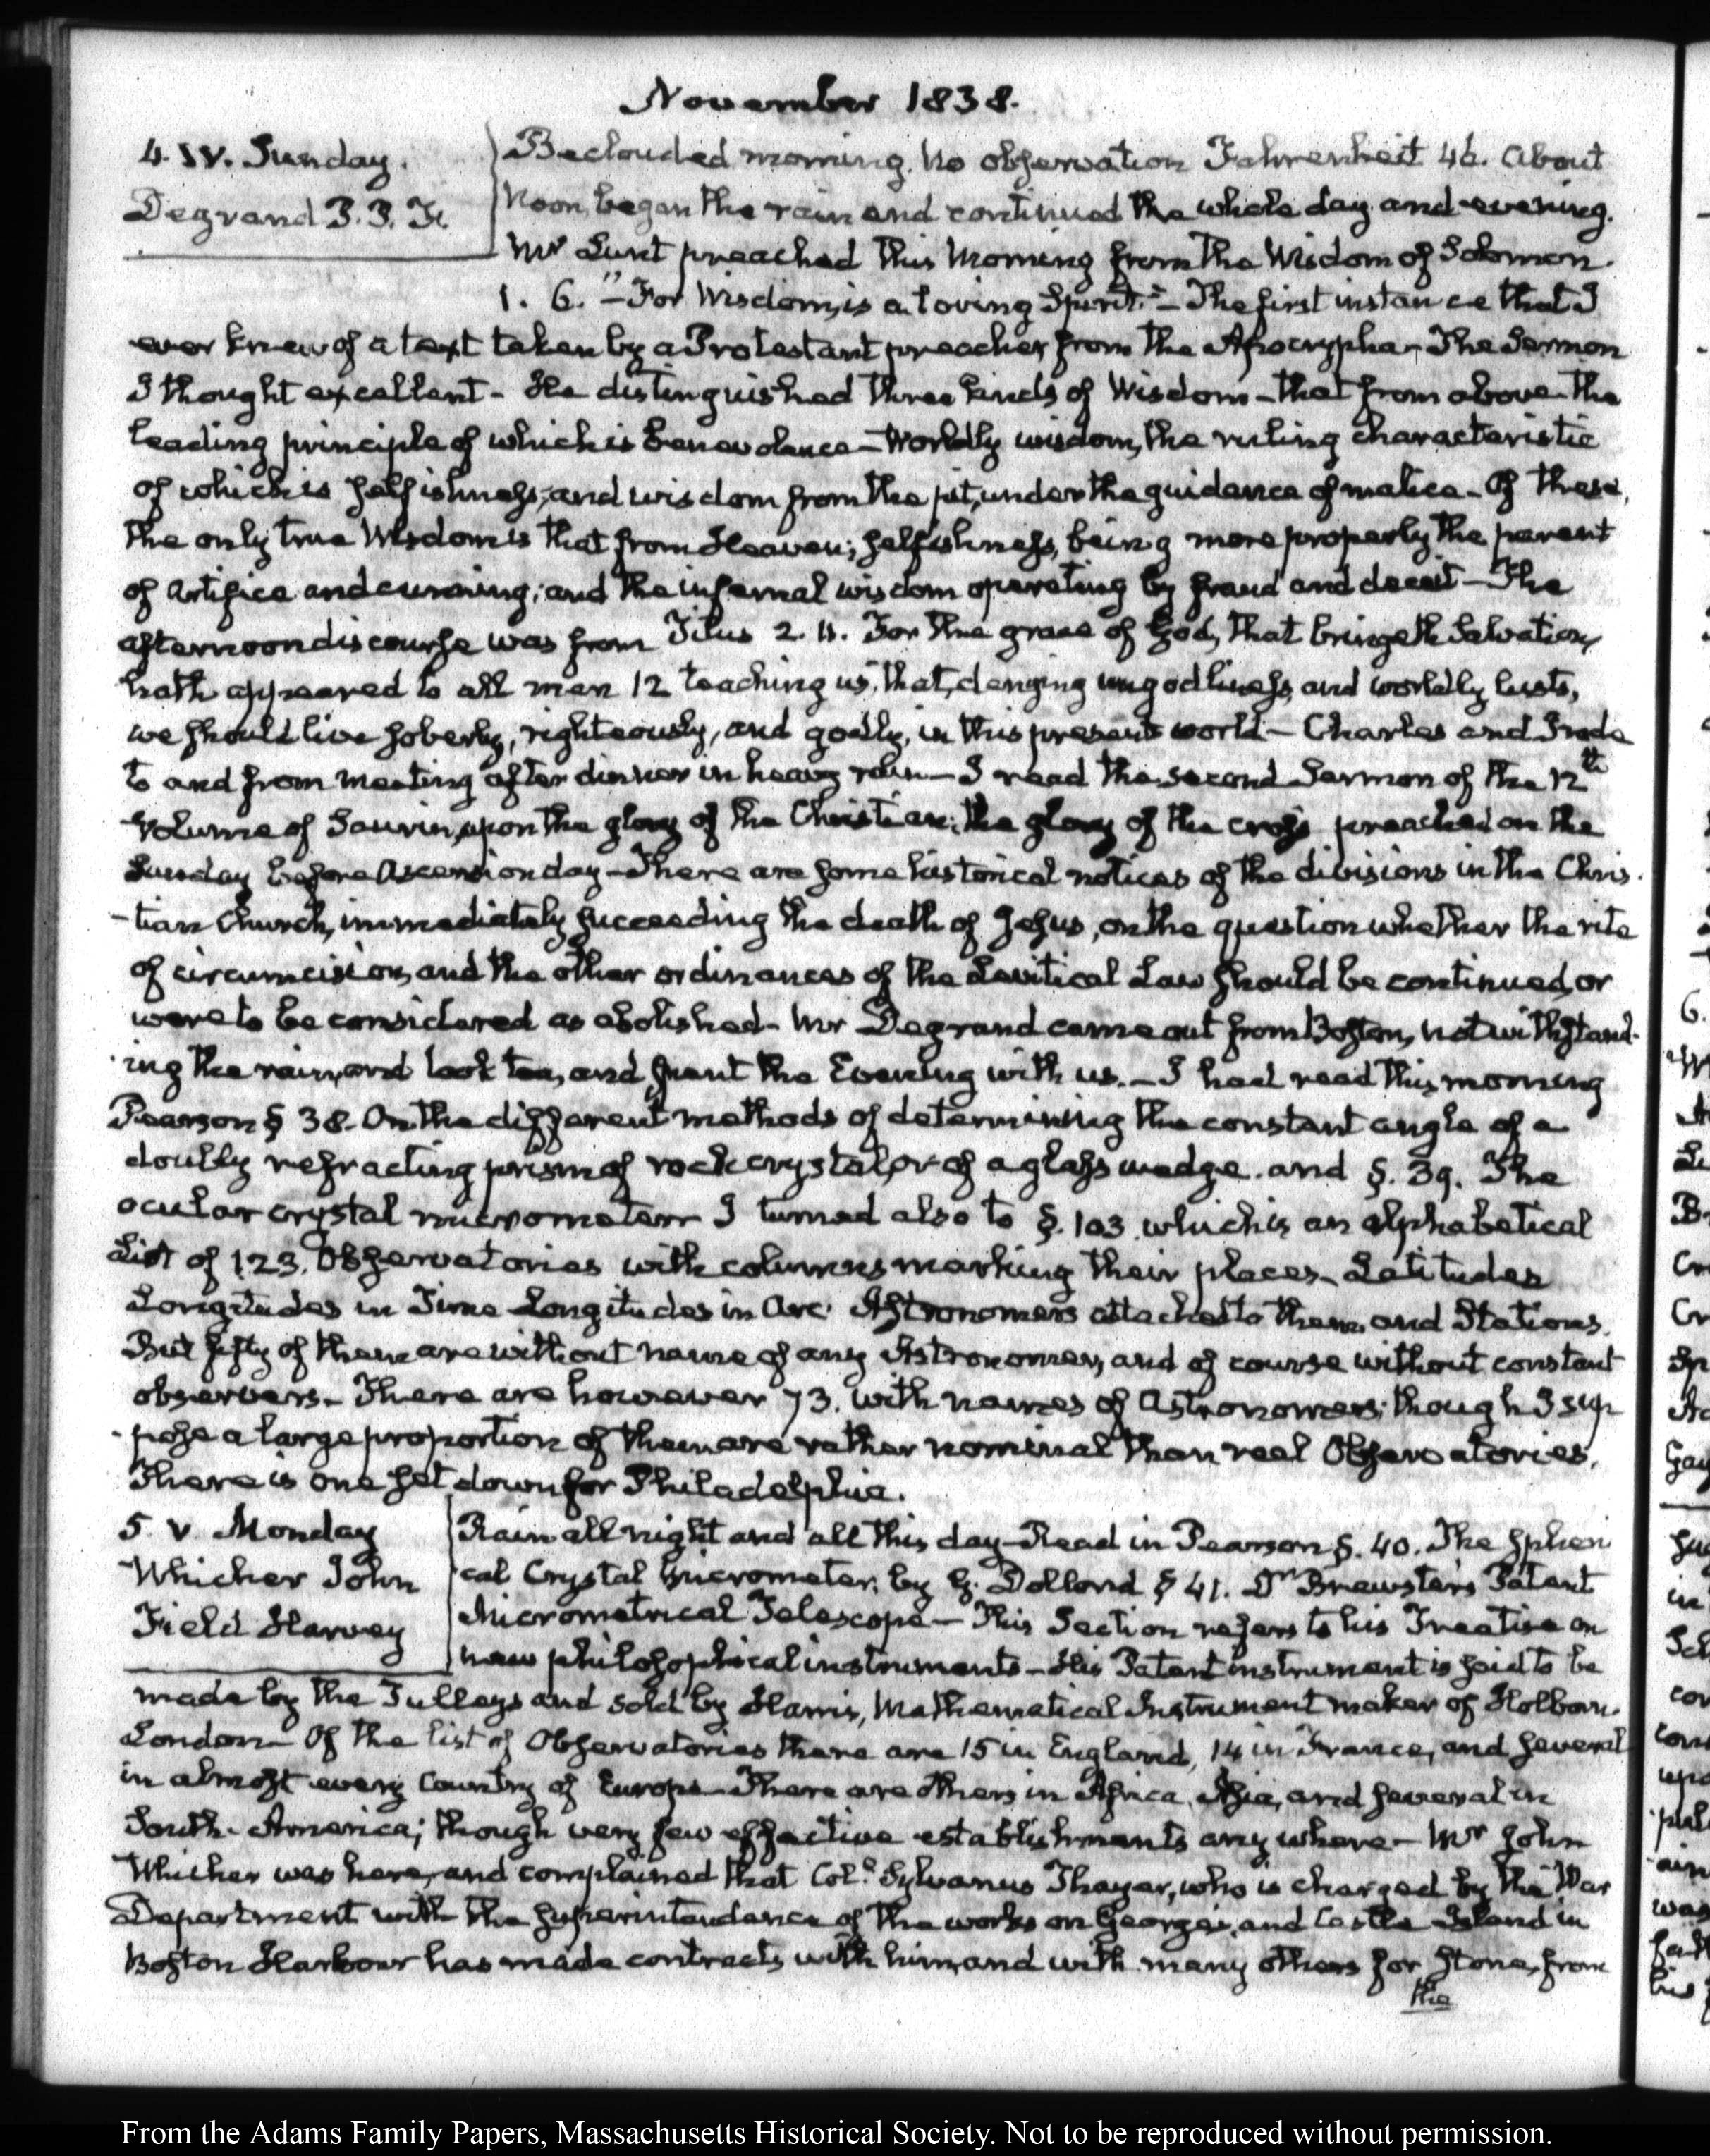 November 1838.
4. IV. Sunday.
Degrand P. P. F.
Beclouded morning. No observation Fahrenheit 46. About
Noon, began the rain and continued the whole day and evening.
Mr Lunt preached this Morning from the Wisdom of Solomon.
1. 6. "—For Wisdom, is a loving Spirit."— The first instance that I
ever knew of a text taken by a Protestant preacher from the Apocrypha— The Sermon
I thought excellent— He distinguished three kinds of Wisdom— that from above the
leading principle of which is benevolence— Worldly wisdom, the ruling characteristic
of which is selfishness; and wisdom from the pit, under the guidance of malice— Of these,
the only true Wisdom is that from Heaven; selfishness, being more properly the parent
of artifice and cunning; and the infernal wisdom operating by fraud and deceit— The
afternoon discourse was from Titus 2. 11. For the grace of God, that bringeth Salvation,
hath appeared to all men 12 teaching us, that, denying ungodliness, and worldly lusts,
we should live soberly, righteously, and godly, in this present world— Charles and I rode
to and from meeting after dinner in heavy rain— I read the second Sermon of the 12th
volume of Saurin, upon the glory of the Christian; the glory of the cross preached on the
Sunday before Ascension day— There are some historical notices of the divisions in the Chris-
-tian Church, immediately succeeding the death of Jesus, on the question whether the rite
of circumcision, and the other ordinances of the Levitical Law should be continued, or
were to be considered as abolished— Mr Degrand came out from Boston, notwithstand-
ing the rain, and took tea, and spent the Evening with us.— I had read this morning
Pearson § 38. On the different methods of determining the constant angle of a
doubly refracting prism of rock crystal, or of a glass wedge. and §. 39. The
ocular crystal micrometer— I turned also to §. 103. which is an alphabetical
List of 123. Observatories with columns marking their places— Latitudes
Longitudes in Time Longitudes in Arc. Astronomers attached to them, and Stations.
But fifty of them are without name of any Astronomer, and of course without constant
observers— There are however 73. with names of Astronomers; though I sup-
-pose a large proportion of them are rather nominal than real Observatories.
There is one set down for Philadelphia.
5. V. Monday
Whicher John
Field Harvey
Rain all night and all this day— Read in Pearson §. 40. The Spheri
cal Crystal Micrometer, by G. Dollond § 41. Dr Brewster's Patent
Micrometrical Telescope— This Section refers to his Treatise on
new philosophical instruments— His Patent instrument is said to be
made by the Tulleys and sold by Harris, Mathematical Instrument maker of Holborn.
London— Of the list of Observatories there are 15 in England, 14 in France, and several
in almost every Country of Europe— There are others in Africa, Asia, and several in
South-America; though very few effective establishments any where— Mr John
Whicher was here, and complained that Col. Sylvanus Thayer, who is charged by the War
Department with the superintendance of the works on George's, and Castle Island in
Boston Harbour has made contracts with him, and with many others for Stone, from
the
From the Adams Family Papers, Massachusetts Historical Society. Not to be reproduced without permission.